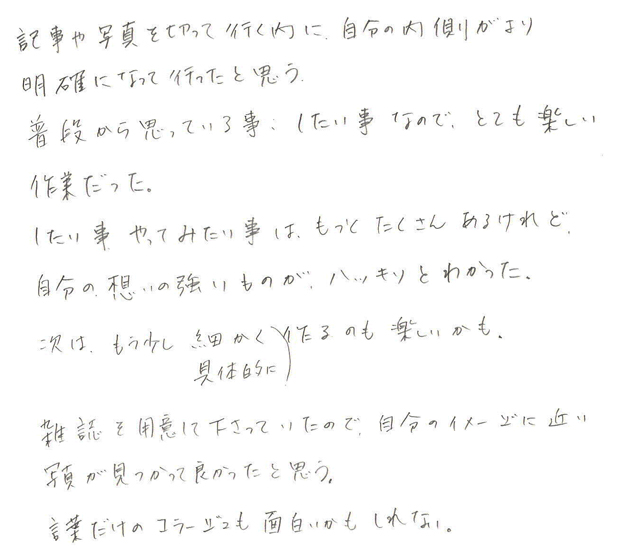 記事や写真を切って行く内に、自分の内側がより
明確になって行ったと思う。
普段から思っている事、したい事なので、とても楽しい
作業だった。
したい事、やってみたい事は、もっとたくさんあるけれど、
自分の想いの強いものが、ハッキリとわかった。
次は、もう少し細かく作るのも楽しいかも。
具体的に
雑誌を用意して下さっていたので、自分のイメージに近い
写真が見つかって良かったと思う。
言葉だけのコラージュも面白いかもしれない。